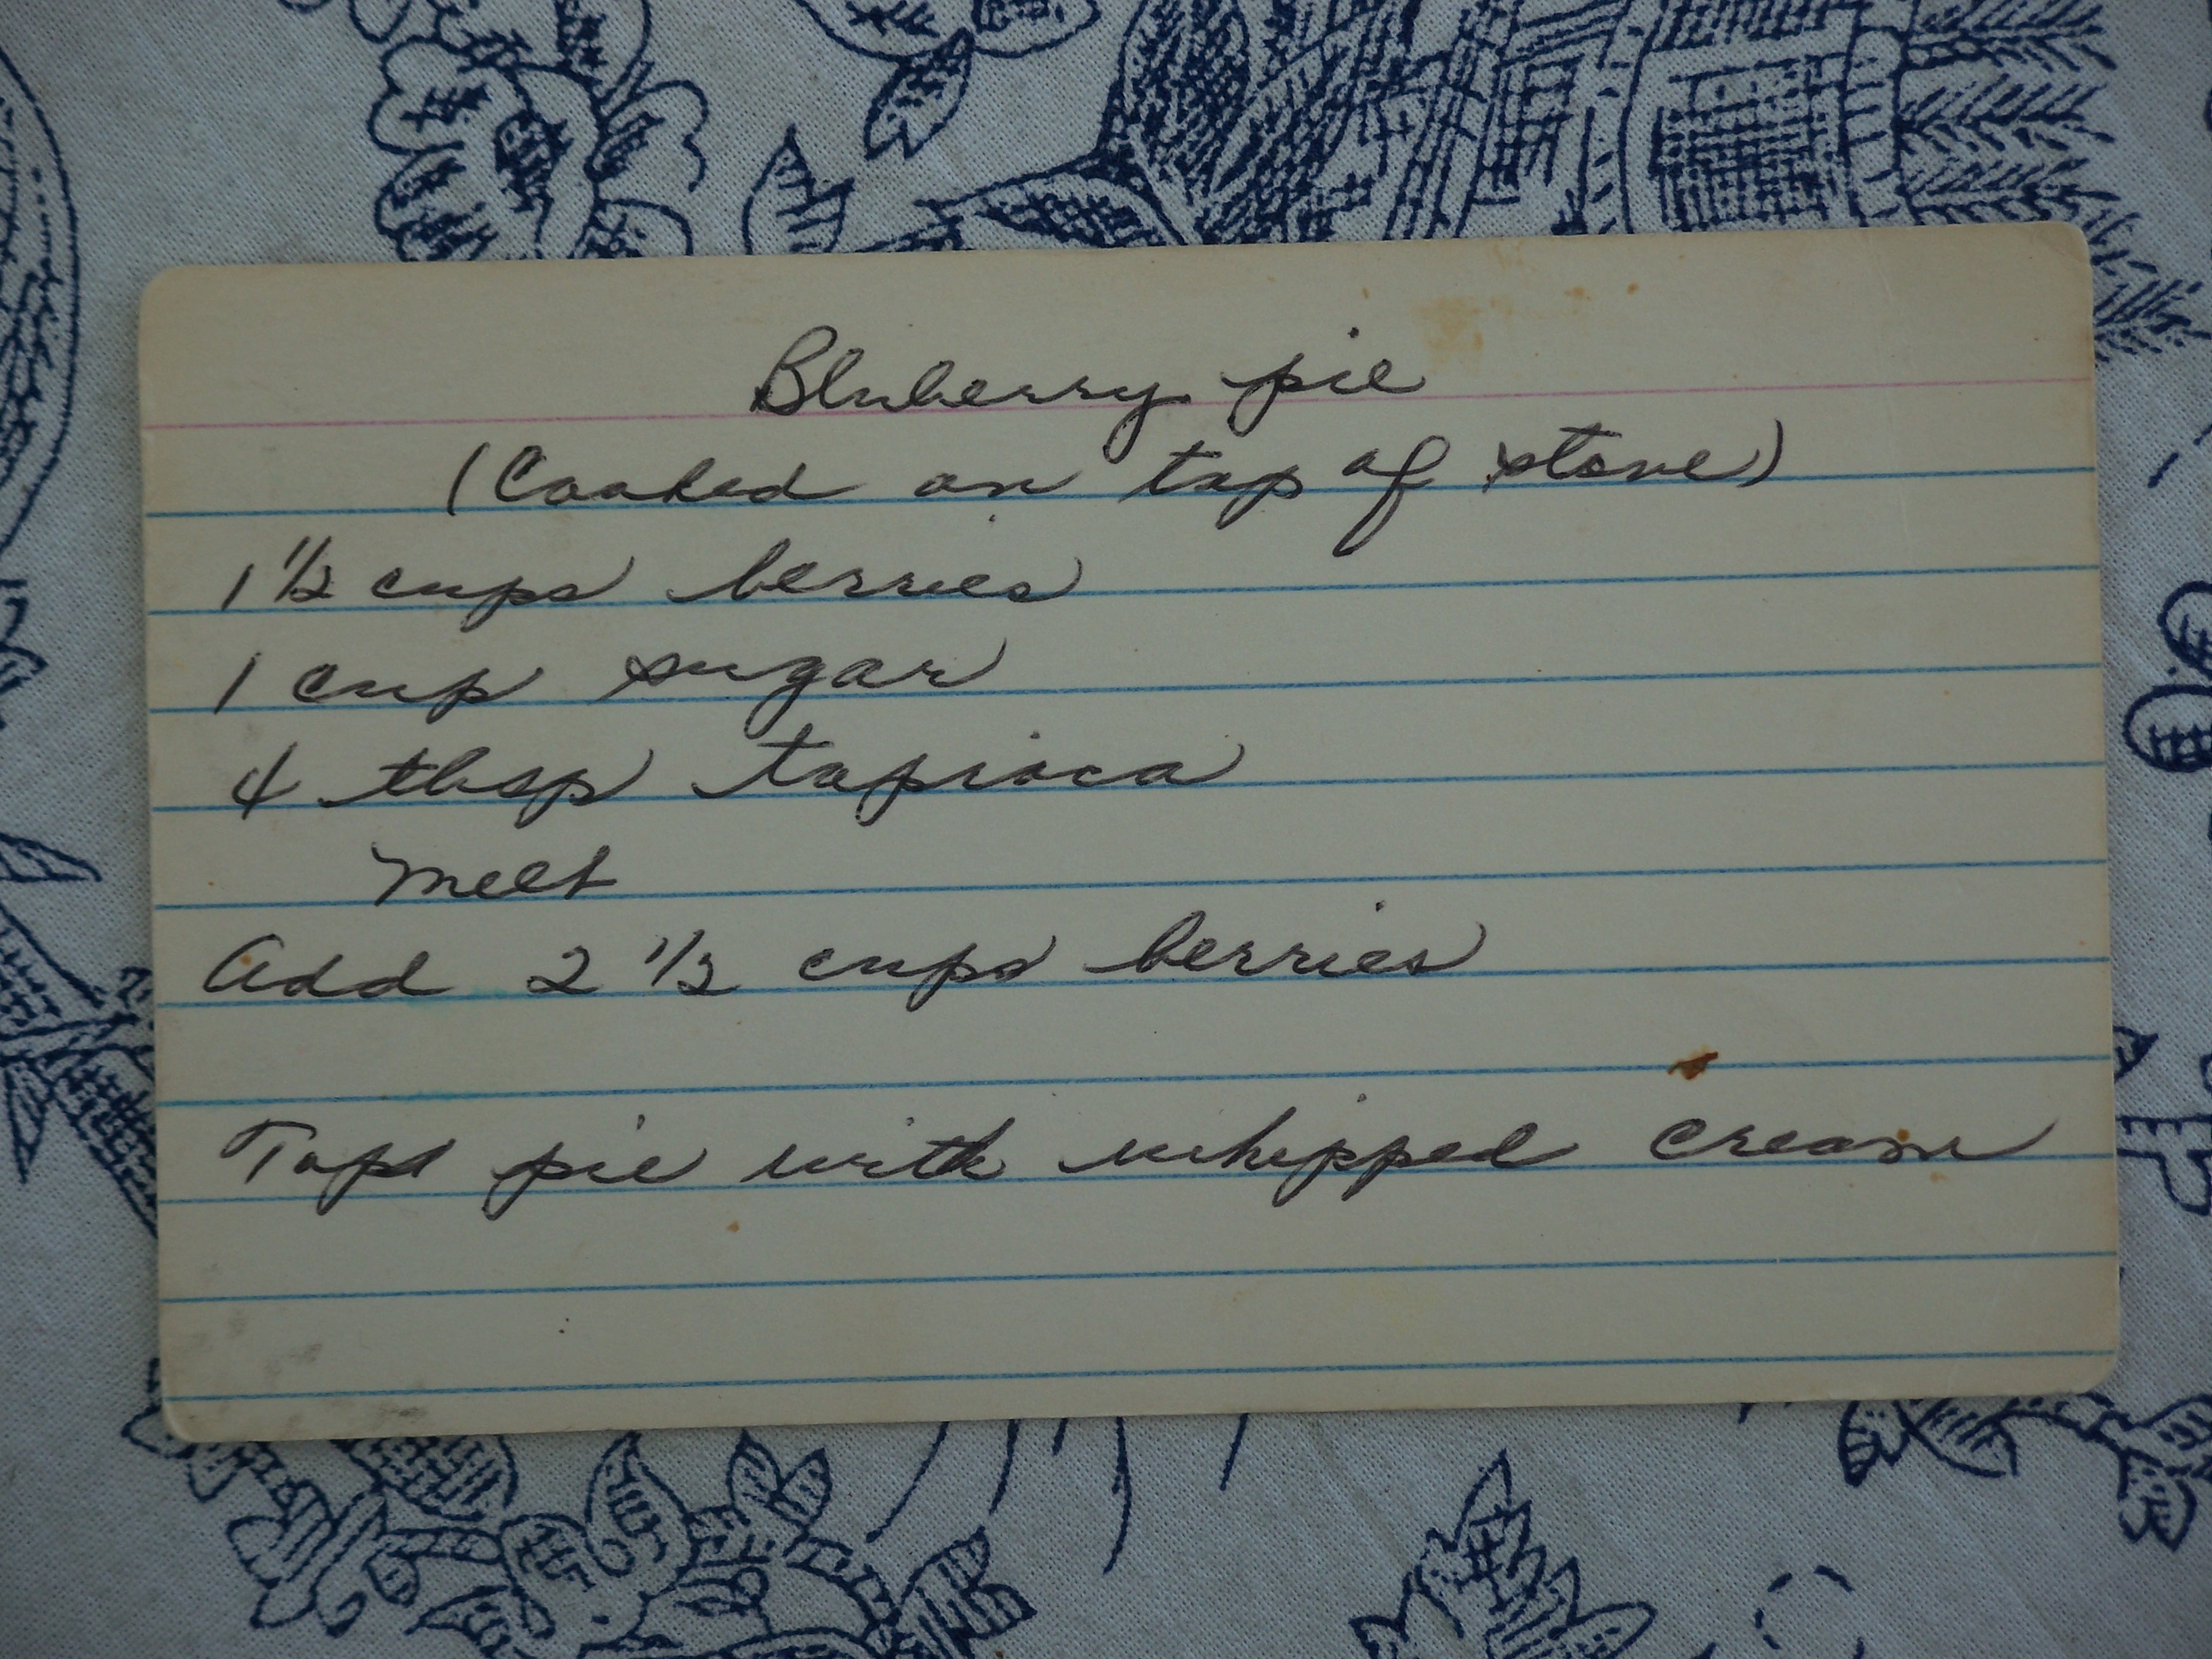 Bluberry pie
(Cooked on top of stove)
1 1/2 cups berries
1 cup sugar
4 tbsp tapioca
Melt
Add 2 1/2 cups berries
Tops pie with whipped cream